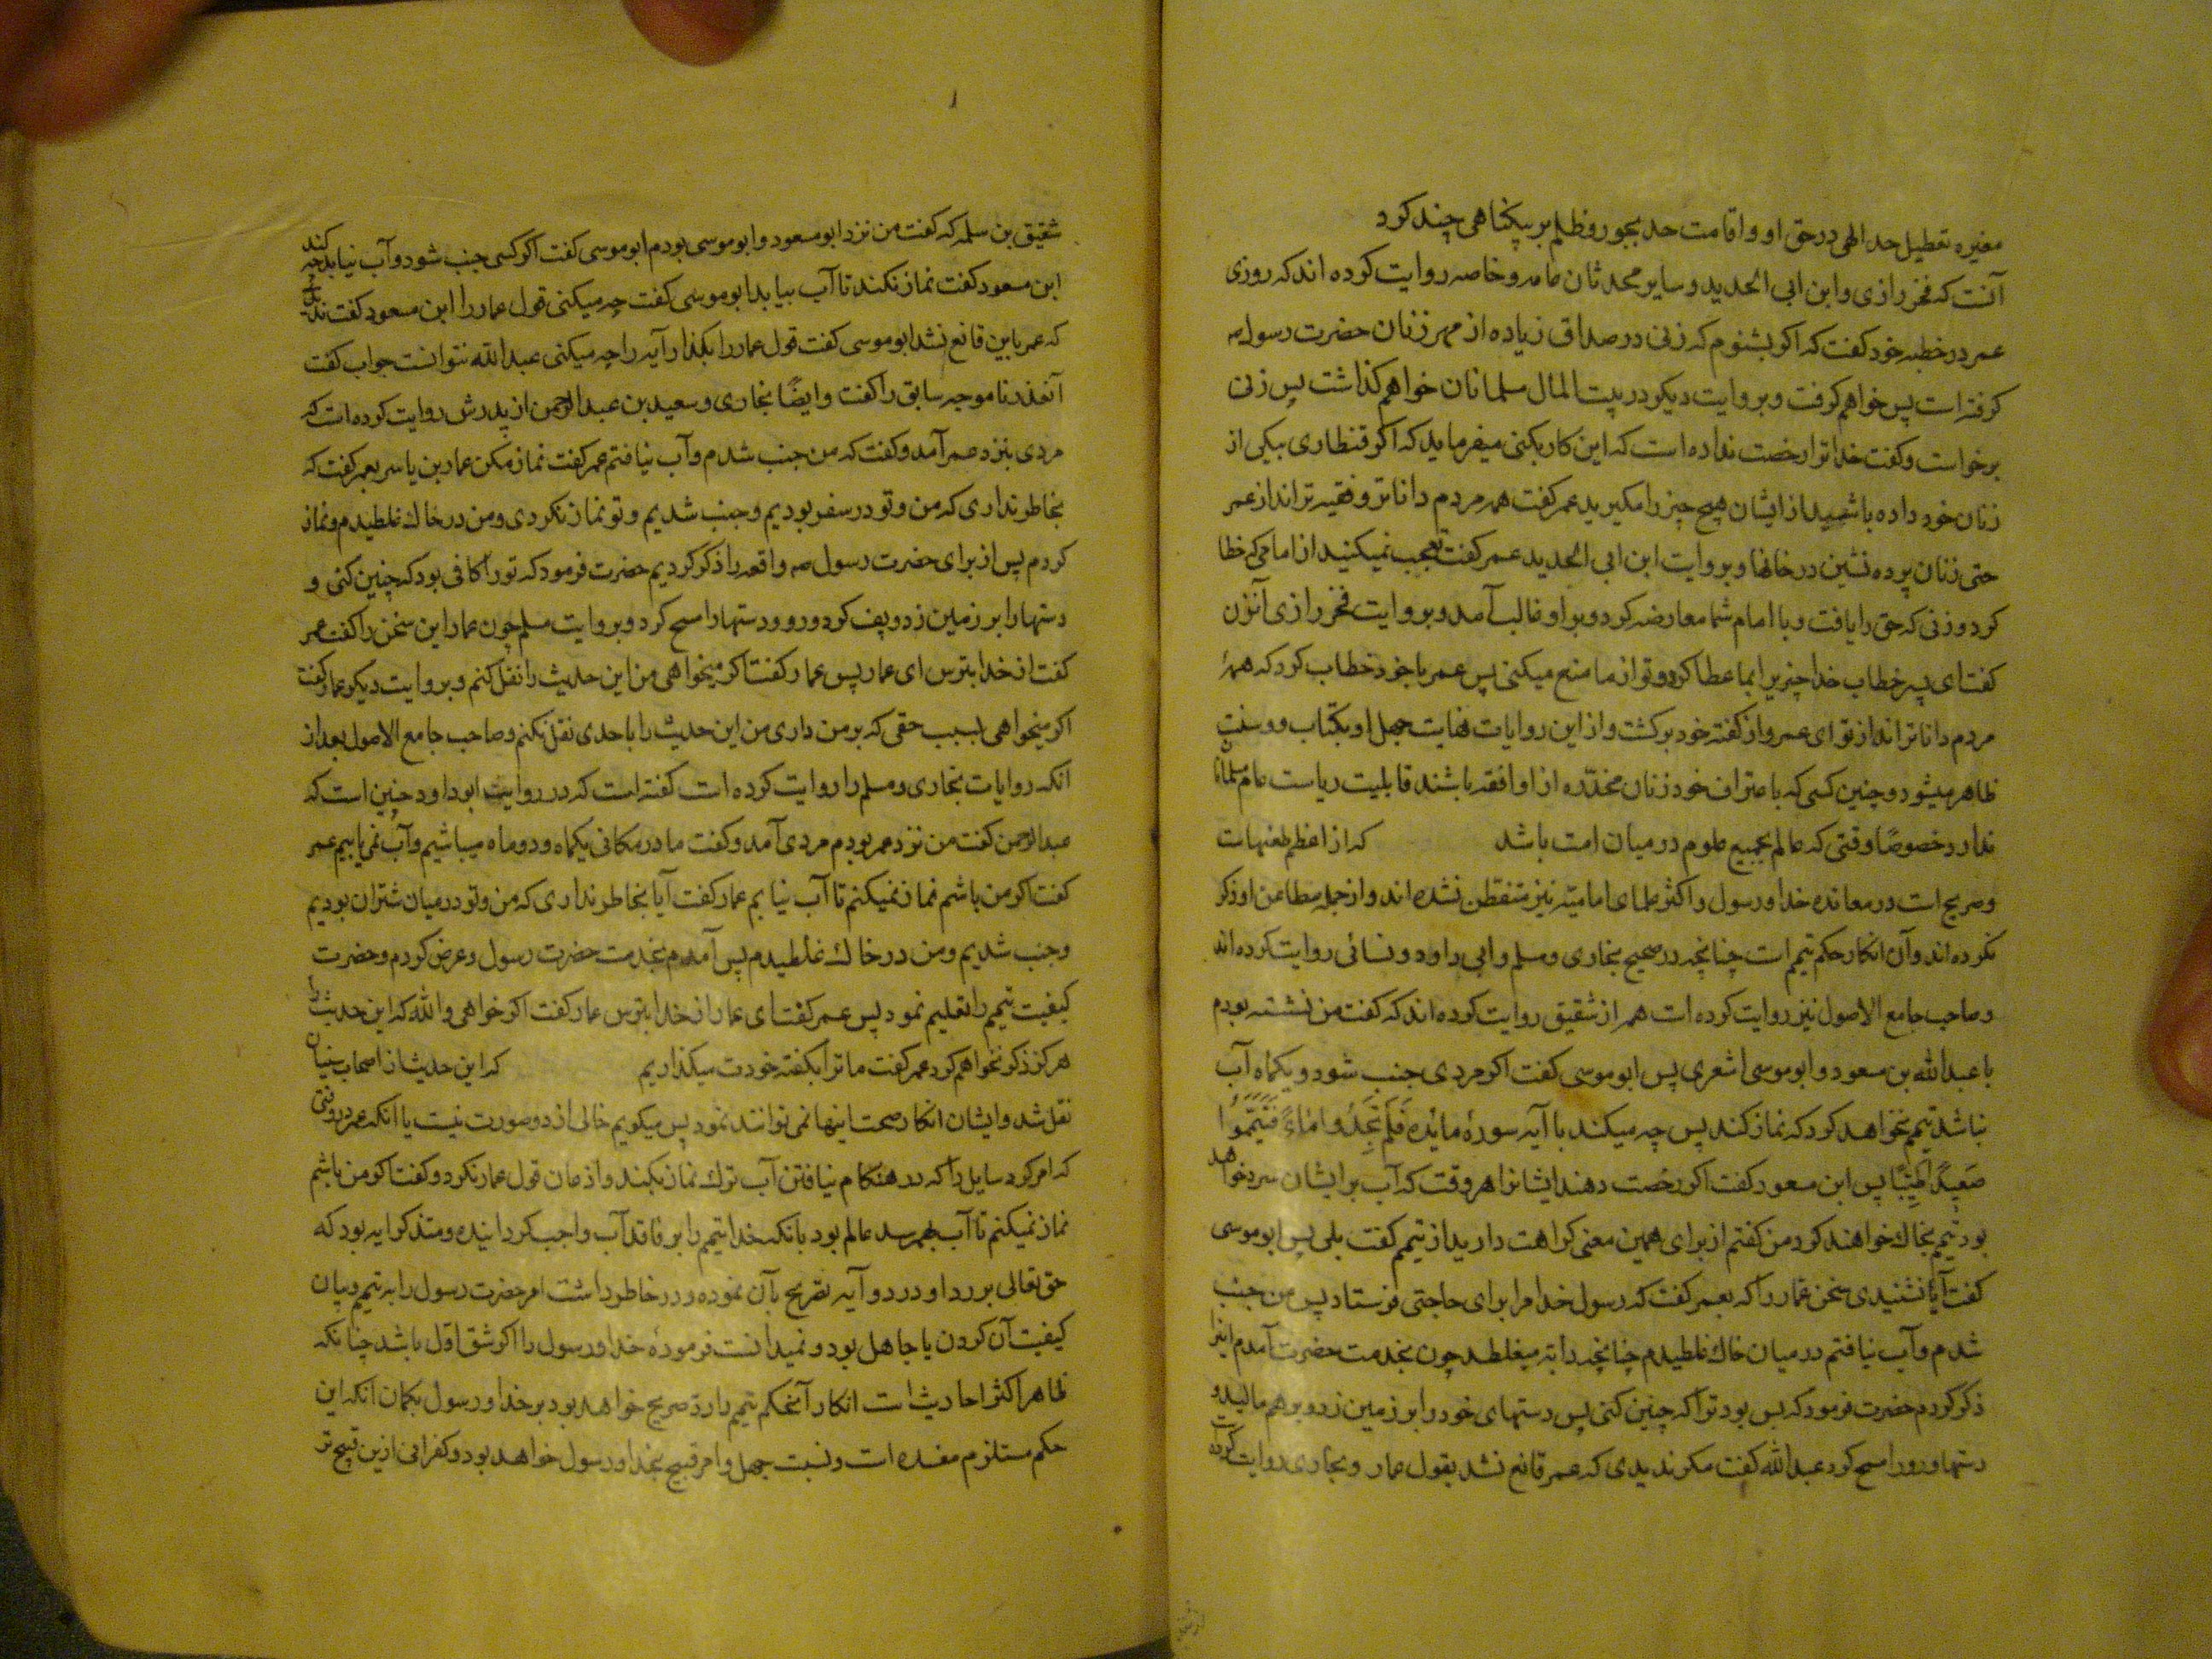 مغیره تعطیل حد الهی در حق او و اقامت حد بجور و ظلم بر بیکناهی چند کرد
آنست که فخر رازی و ابن ابی الحدید و سایر محدثان عامه و خاصه روایت کرده اند که روزی
عمر در خطبه خود کفت که اکر بشنوم که زنی در صداق زیاده از مهر زنان حضرت رسول صه
کرفته است پس خواهم کرفت و بروایت دیکر در بیت المال مسلمانان خواهم کذاشت پس زنی
برخواست و کفت خدا ترا رخصت نداده است که این کار بکنی میفرماید که اکر قنطاری بیکی از
زنان خود داده باشید از ایشان هیچ چیز را مکیرید عمر کفت همه مردم داناتر و فقیه ترند از عمر
حتی زنان پرده نشین در خانها و بروایت ابن ابی الحدید عمر کفت تعجب نمیکنید از امامی که خطا
کرد و زنی که حق را یافت و با امام شما معارضه کرد و بر او غالب آمد و بروایت فخر رازی آنزن
کفت ای پسر خطاب خدا چیزی را بما عطا کرد و تو از ما منع میکنی پس عمر با خود خطاب کرد که همهٔ
مردم داناترند از تو ای عمر و از کفته خود برکشت و از این روایات نهایت جهل او بکتاب و سنت
ظاهر میشود و چنین کسی که باعتراف خود زنان مخدّره از او افقه باشند قابلیت ریاست عام مسلمانان
ندارد خصوصًا وقتی که عالم بجمیع علوم در میان امت باشد که از اعظم طعنهاست
و صریح است در معانده خدا و رسول و اکثر علمای امامیّه نیز متفطّن نشده اند و از جمله مطاعن او ذکر
نکرده اند و آن انکار حکم تیمم است چنانچه در صحیح بخاری و مسلم و ابی داود و نسائی روایت کرده اند
و صاحب جامع الاصول نیز روایت کرده است همه از شقیق روایت کرده اند که کفت من نشسته بودم
با عبد الله بن مسعود و ابو موسی اشعری پس ابو موسی کفت اکر مردی جنب شود و یکماه آب
نباشد تیمم نخواهد کرد که نماز کند پس چه میکند با آیه سورهٔ مائده فَلَم تَجِدُوا مَاءً فَتَیَمَّمُوا
صَعِیدًا طَیِّبًا پس ابن مسعود کفت اکر رخصت دهند ایشانرا هر وقت که آب بر ایشان سرد خواهد
بود تیمم بخاک خواهند کرد من کفتم از برای همین معنی کراهت دارید از تیمم کفت بلی پس ابو موسی
کفت آیا نشنیدی سخن عمار را که بعمر کفت که رسول خدا مرا برای حاجتی فرستاد پس من جنب
شدم و آب نیافتم در میان خاک غلطیدم چنانچه دابه میغلطد چون بخدمت حضرت آمدم اینرا
ذکر کردم حضرت فرمود که بس بود ترا که چنین کنی پس دستهای خود را بر زمین زد و بر هم مالید و
دستها و رو را مسح کرد عبد الله کفت مکر ندیدی که عمر قانع نشد بقول عمار و بخاری روایت کرده
شقیق بن سلمه که کفت من نزد ابو مسعود و ابو موسی بودم ابو موسی کفت اکر کسی جنب شود و آب نیابد چه کند
ابن مسعود کفت نماز نکند تا آب بیابد ابو موسی کفت چه میکنی قول عمار را ابن مسعود کفت
که عمر باین قانع نشد ابو موسی کفت قول عمار را بکذار آیه را چه میکنی عبد الله نتوانست جواب کفت
آنعذر ناموجه سابق را کفت و ایضًا بخاری و سعید بن عبد الرحمن از پدرش روایت کرده است که
مردی بنزد عمر آمد و کفت که من جنب شدم و آب نیافتم عمر کفت نماز مکن عمار بن یاسر بعمر کفت که
بخاطر نداری که من و تو در سفر بودیم و جنب شدیم و تو نماز نکردی و من در خاک غلطیدم و نماز
کردم پس از برای حضرت رسول صه واقعه را ذکر کردیم حضرت فرمود که تو را کافی بود که چنین کنی و
دستها را بر زمین زد و پف کرد و رو و دستها را مسح کرد و بروایت مسلم چون عمار این سخن را کفت عمر
کفت از خدا بترس ای عمار پس عمار کفت اکر میخواهی من این حدیث را نقل نکنم و بروایت دیکر عمار کفت
اکر میخواهی بسبب حقی که بر من داری من این حدیث را با حدی نقل نکنم و صاحب جامع الاصول بعد از
انکه روایات بخاری و مسلم را روایت کرده است کفته است که در روایت ابو داود چنین است که
عبد الرحمن کفت من نزد عمر بودم مردی آمد و کفت ما در مکانی یکماه و دو ماه میباشیم و آب نمی یابیم عمر
کفت اکر من باشم نماز نمیکنم تا آب نیابم عمار کفت آیا بخاطر نداری که من و تو در میان شتران بودیم
و جنب شدیم و من در خاک غلطیدم پس آمدم بخدمت حضرت رسول و عرض کردم و حضرت
کیفیت تیمم را تعلیم نمود پس عمر کفت ای عمار از خدا بترس عمار کفت اکر خواهی والله که این حدیث را
هرکز ذکر نخواهم کرد عمر کفت ما ترا بکفته خودت میکذاریم که این حدیث از اصحاب سنیان
نقل شد و ایشان انکار صحت اینها نمی توانند نمود پس میکویم خالی از دو صورت نیست یا انکه عمر در وقتی
که امر کرد سایل را که در هنکام نیافتن آب ترک نماز بکند و اذعان قول عمار نکرد و کفت اکر من باشم
نماز نمیکنم تا آب بهم رسد عالم بود بانکه خدا تیمم را بر فاقد آب واجب کردانیده و متذکر ایه بود که
حق تعالی بر رد او در دو آیه تصریح بآن نموده و در خاطر داشت امر حضرت رسول را به تیمم و بیان
کیفیت آن کردن یا جاهل بود و نمیدانست فرمودهٔ خدا و رسول را اکر شق اول باشد چنانکه
ظاهر اکثر احادیث است انکار آنحکم تیمم ردّ صریح خواهد بود بر خدا و رسول بکمان انکه این
حکم مستلزم مفسده است و نسبت جهل و امر قبیح بخدا و رسول خواهد بود و کفرانی ازین قبیح تر